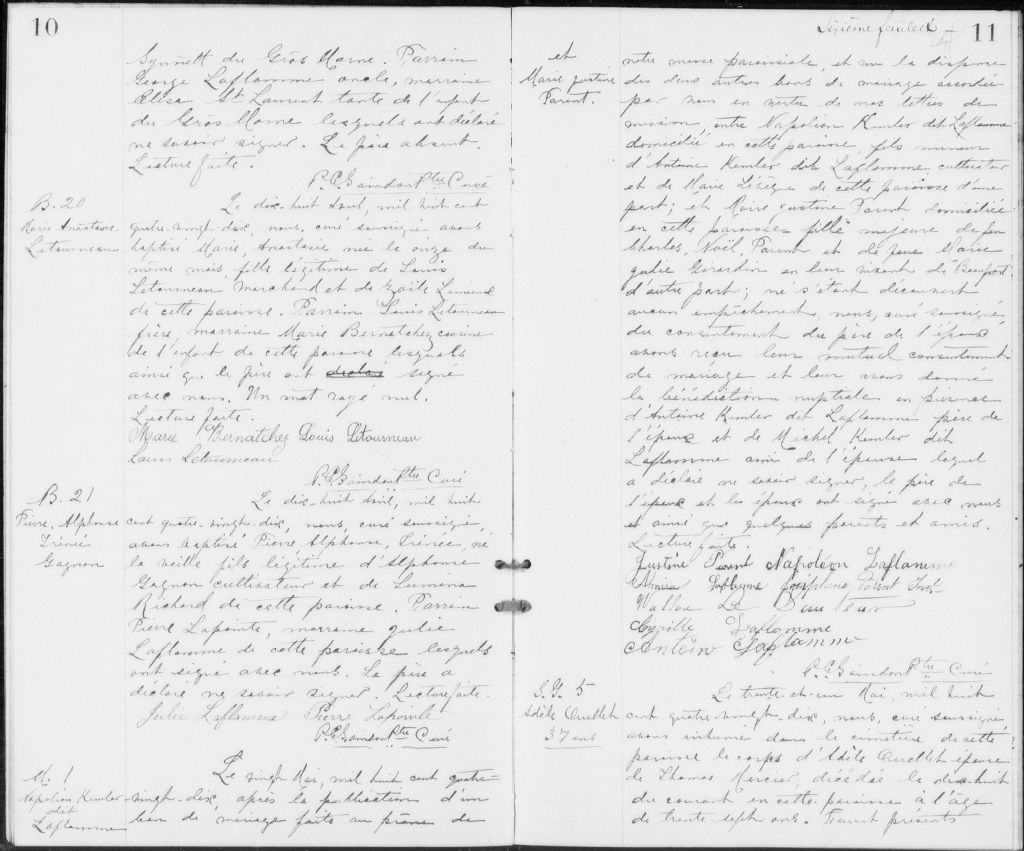 10
Synnett du Gros Morne. Parrain
George Laflamme oncle, marraine
Eliza St Laurent tante de l'enfant
du Gros Morne lesquels ont déclaré
ne savoir signer. Le père absent.
Lecture faite.
Ptre Curé
B. 20
Marie Anastasie
Letourneau
Le dix-huit Avril, mil huit cent
quatre-vingt-dix, nous, curé soussigné, avons
baptisé Marie, Anastasie née le onze du
même mois, fille légitime de Louis
Letourneau Marchand et de Zoïle Lemieux
de cette paroisse. Parrain Louis Letourneau
frère, marraine Marie Bernatchez cousine
de l'enfant de cette paroisse lesquels
ainsi que le père ont declaré signé
avec nous. Un mot rayé nul.
Lecture faite.
Marie Bernatchez Louis Letourneau
Louis Letourneau
Ptre Curé
B. 21
Pierre, Alphonse
Irénée
Gagnon
Le dix-huit Avril, mil huit
cent quatre-vingt-dix, nous, curé soussigné,
avons baptisé Pierre Alphonse, Irénée, né
la veille fils légitime d'Alphonse
Gagnon cultivateur et de Lumena
Richard de cette paroisse. Parrain
Pierre Lapointe, marraine Julie
Laflamme de cette paroisse lesquels
ont signé avec nous. Le père a
déclaré ne savoir signer. Lecture faite.
Julie Laflamme Pierre Lapointe
Ptre Curé
M. 1
Napoléon Kemler
dit
Laflamme
Le vingt Mai, mil huit cent quatre-
vingt-dix, après la publication d'un
ban de mariage faite au prône de
Sixième feuillet
11
et
Marie Justine
Parent.
notre messe paroissiale, et vu la dispense
des deux autres bans de mariage accordée
par nous en vertu de nos lettres de
mission entre Napoléon Kemler dit Laflamme
domicilié en cette paroisse, fils mineur
d'Antoine Kemler dit Laflamme cultivateur
et de Marie Lévêque de cette paroisse d'une
part; et Marie Justine Parent domiciliée
en cette paroisse fille majeure de feu
Charles, Noël, Parent et de feue Marie
Julie Girardin en leur vivant de Beauport
d'autre part; ne s'étant decouvert
aucun empêchement, nous, curé soussigné
du consentement du père de l'époux
avons reçu leur mutuel consentement
de mariage et leur avons donné
la bénédiction nuptiale en présence
d'Antoine Kemler dit Laflamme père de
l'époux et de Michel Kemler dit
Laflamme ami de l'épouse lequel
a déclaré ne savoir signer, le père de
l'époux et les époux ont signé avec nous
et ainsi que quelques parents et amis.
Lecture faite.
Justine Parent Napoléon Laflamme
Laflamme Joséphine Parent Inst.
Cyrille Laflamme
Antoin Laflamme
Ptre Curé
S. G. 5
Adèle Ouellet
37 ans
Le trente-et-un Mai, mil huit
cent quatre-vingt-dix, nous, curé soussigné
avons inhumé dans le cimetière de cette
paroisse le corps d'Adèle Ouellet épouse
de Thomas Mercier, décédée le dix-huit
du courant en cette paroisse à l'âge
de trente-sept ans. Furent présents